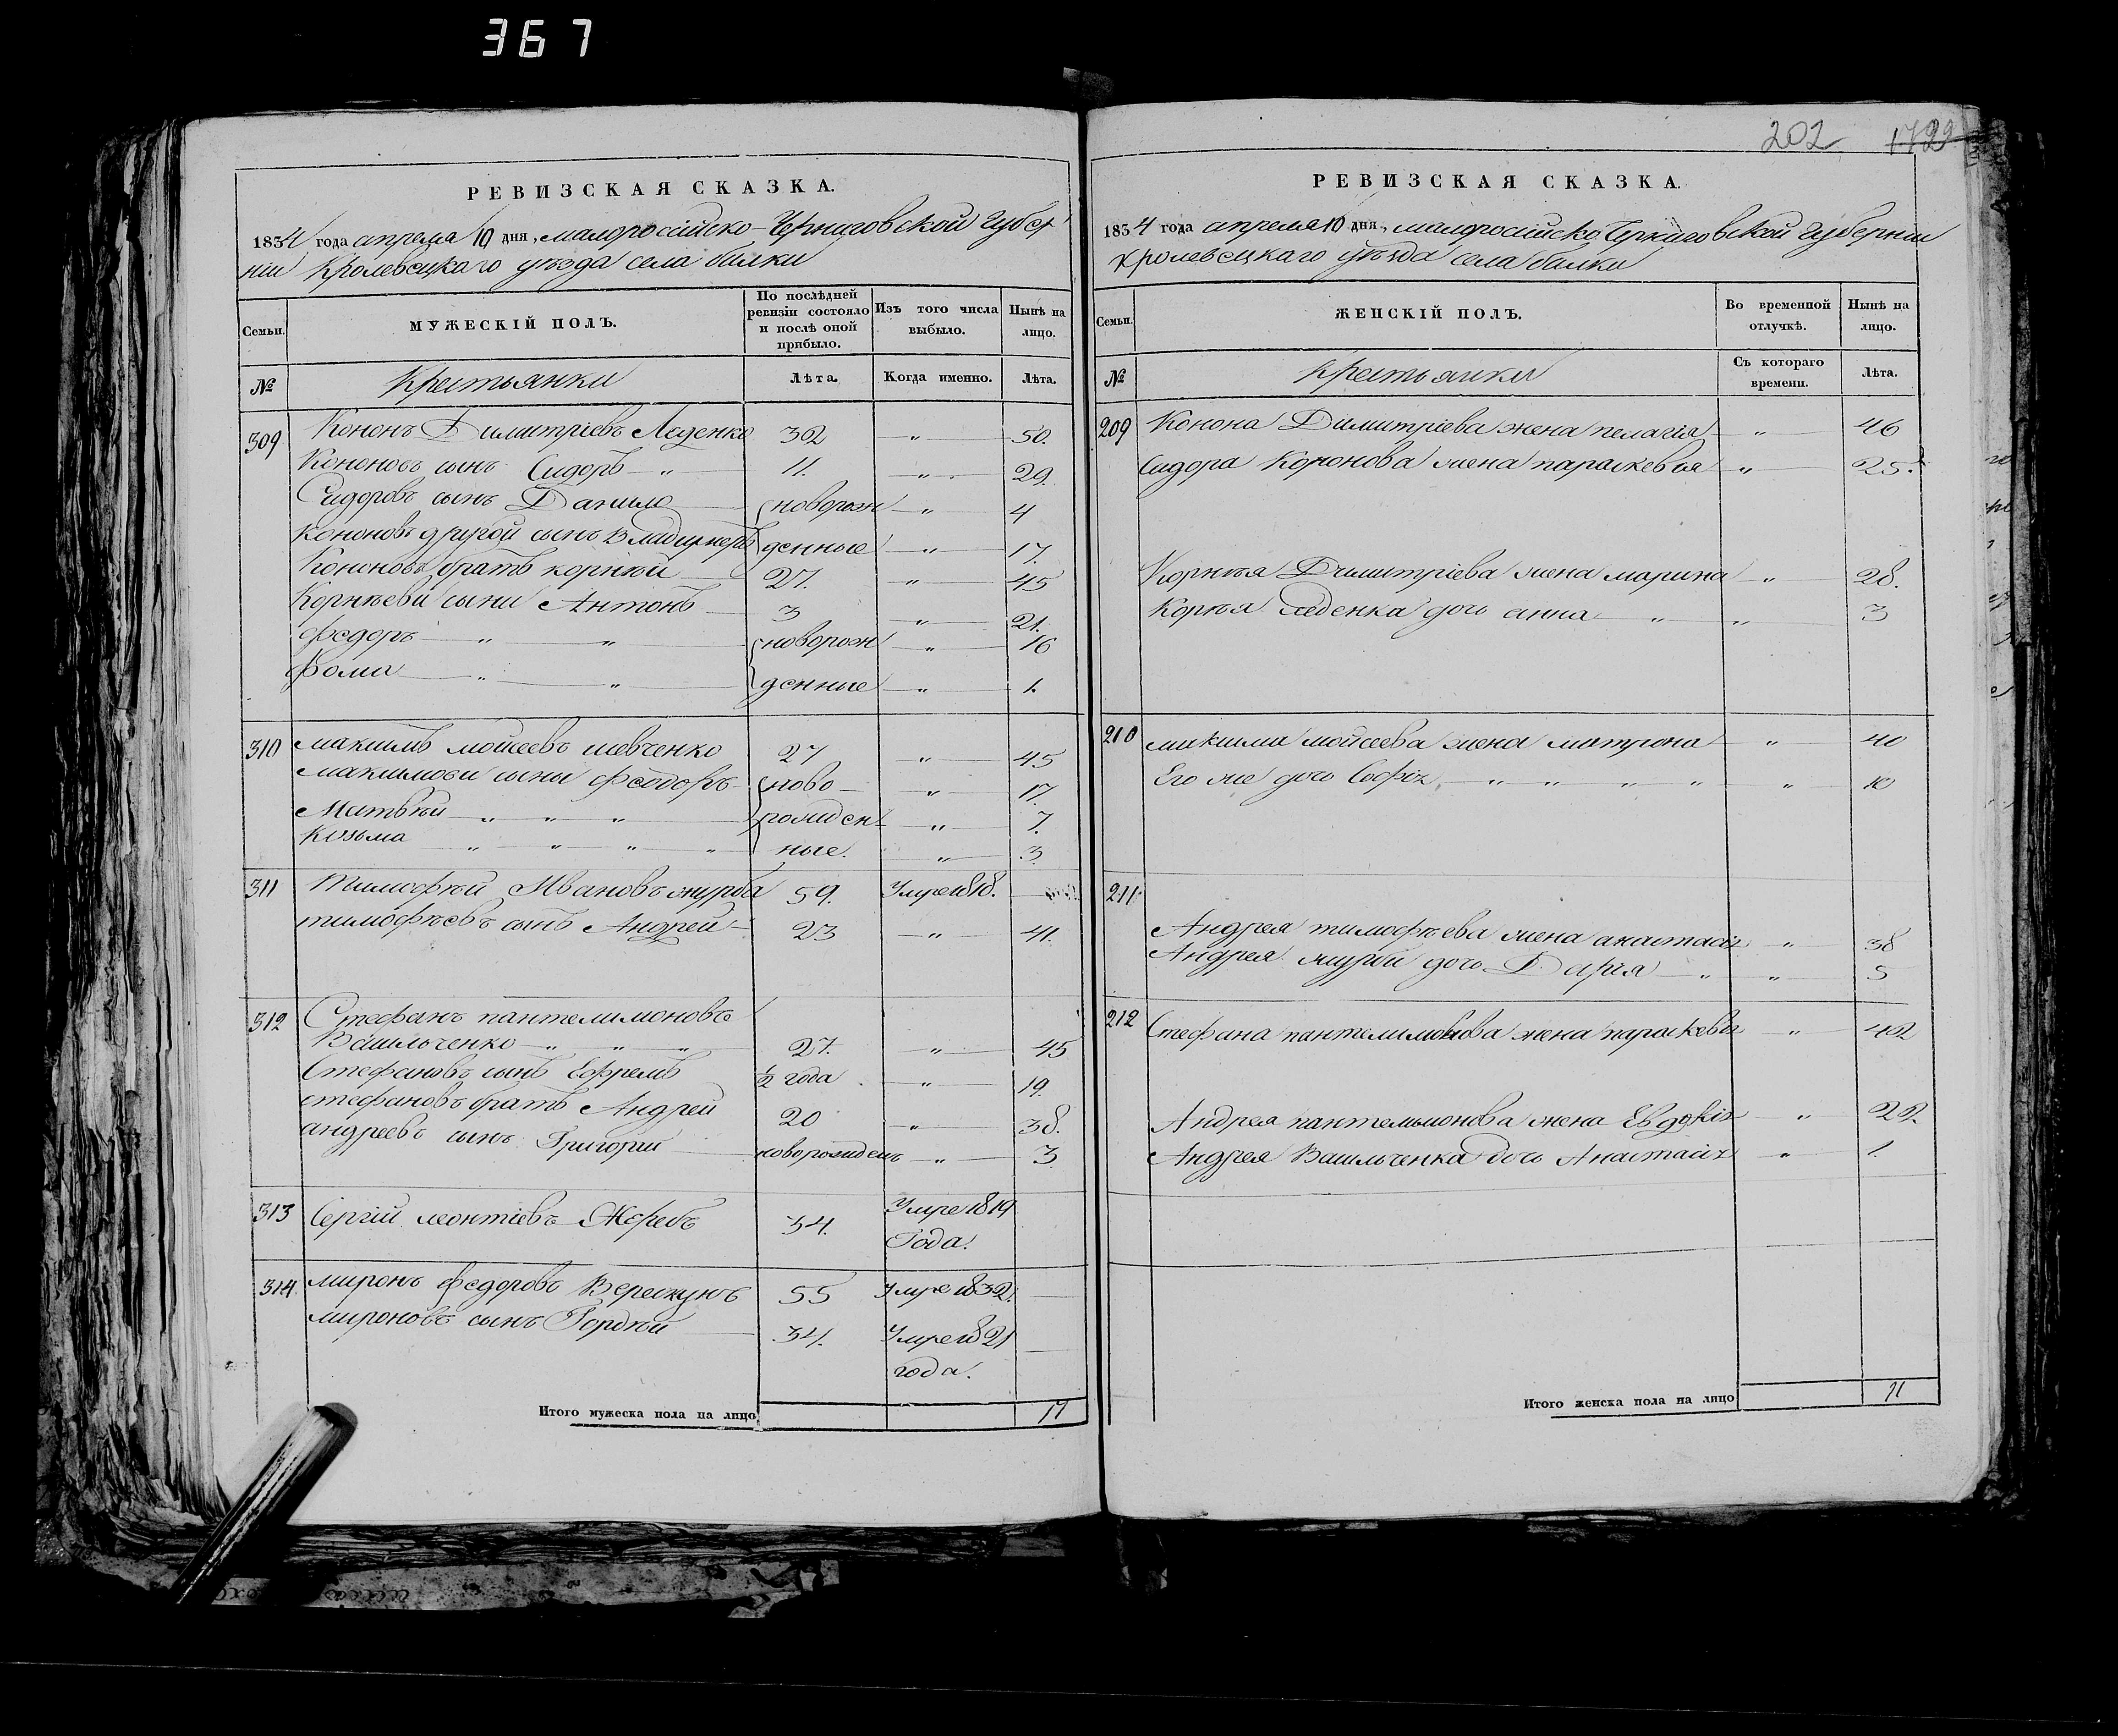 367
202 1722
РЕВИЗСКАЯ СКАЗКА.
1834 года апреля 10 дня, малоросійско-Черниговской Губер
ніи Кролевецкаго уѣзда села билки
Семьи.
МУЖЕСКІЙ ПОЛЪ.
По послѣдней ревизіи состояло и послѣ оной прибыло.
Изъ того числа выбыло.
Нынѣ на лицо.
№ Крестьянки Лѣта. Когда именно. Лѣта.
309 Кононъ Димитріевъ Леденко 32 „ 50.
Кононовъ сынъ Сидоръ „ 11. „ 29.
Сидоровъ сынъ Данило новорож „ 4
Кононовъ другой сынъ Владимеръ денные „ 17.
Кононовъ братъ корнѣй 27. „ 45
Корнѣеви сыни Антонъ 3 „ 21.
федоръ „ „ новорож „ 16
Фома „ „ денные „ 1.
310 максимъ мойсеевъ шевченко 27 „ 45
максимови сыни феодоръ ново „ 17.
Матвѣй „ „ „ рожден „ 7.
Козьма „ „ „ „ ные. „ 3.
311 Тимофѣй Ивановъ журба 59. Умре 1818.
тимофѣевъ сынъ Андрей 23 „ 41.
312 Стефанъ пантелимоновъ
Васильченко „ „ „ 27. „ 45
Стефановъ сынъ Ефремъ ½ года „ 19.
стефановъ братъ Андрей 20 „ 38.
андреевъ сынъ Григорій новорожден „ 3
313 Сергій леонтіевъ Жеребъ 34. Умре 1819
Года.
314 миронъ федоровъ Верещунъ 55 Умре 1832.
мироновъ сынъ Гордѣй 34. Умре 1821
года.
Итого мужеска пола на лицо 17
РЕВИЗСКАЯ СКАЗКА.
1834 года апреля 10 дня, малоросійско Черниговской Губерніи
Кролевецкаго уѣзда села билки
Семьи.
ЖЕНСКІЙ ПОЛЪ.
Во временной отлучкѣ.
Нынѣ на лицо.
№ Крестьянки Съ котораго времени. Лѣта.
209 Конона Димитріева жена пелагія „ 46
Сидора Кононова жена параскевія „ 25.
Корнѣя Димитріева жена марина „ 28.
Корнѣя Леденка дочь анна „ „ 3
210 максима мойсеева жена матрона „ 40
Его же дочь Софія „ „ „ „ „ 10
211
Андрея тимофѣева жена анастасія „ 38
Андрея журби дочь Дарія „ „ 5
212 Стефана пантелимонова жена параскевія „ 42
Андрея пантелимонова жена Евдокія „ 22.
Андрея Васильченка дочь Анастасія „ 1.
Итого женска пола на лицо 11